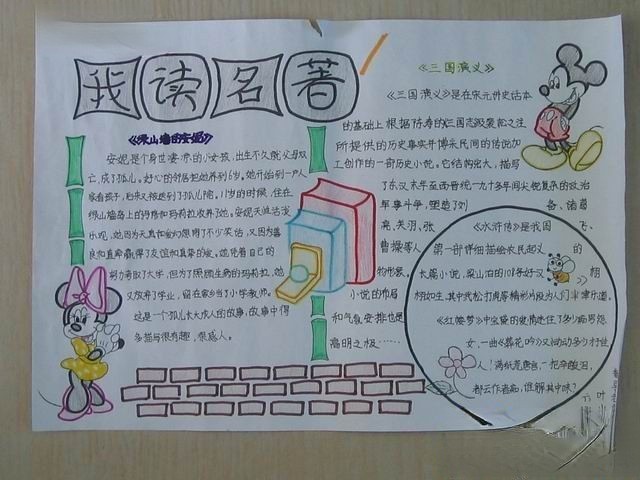 我读名著
《绿山墙的安妮》
安妮是个身世凄凉的小女孩,出生不久就父母双
亡,成了孤儿。好心的邻居把她养到8岁。她开始到一户人
家看孩子,后来又被送到了孤儿院。11岁的时候,住在
绿山墙岛上的马修和玛莉拉收养了她。安妮天性活泼
乐观,她因为天真和爱幻想闹了不少笑话,又因为善
良和直率赢得了友谊和真挚的爱。她凭着自己的
努力考取了大学,但为了照顾生病的玛莉拉,她
又放弃了学业,留在家乡当了小学教师。
这是一个孤儿长大成人的故事,故事中很
多描写很有趣,很感人。
《三国演义》
《三国演义》是在宋元讲史话本
的基础上根据陈寿的《三国志》及裴松之注
所提供的历史事实并博采民间的传说加
工创作的一奇历史小说。它结构宏大,描写
了东汉末年至西晋统一九十多年间尖锐复杂的政治
军事斗争,塑造了刘
备、诸葛
亮、关羽、张
飞、
曹操等人
物形象。
小说的布局
和气氛安排也是
高明之极……
《水浒传》是我国
第一部详细描绘农民起义的
长篇小说,梁山泊的108条好汉栩
栩如生,其中武松打虎等情形片段为人们津津乐道。
《红楼梦》中宝黛的爱情迷住了多少痴男怨
女,一曲《葬花吟》又打动多少村性
人!满纸荒唐言,一把辛酸泪,
都云作者痴,谁解其中味?